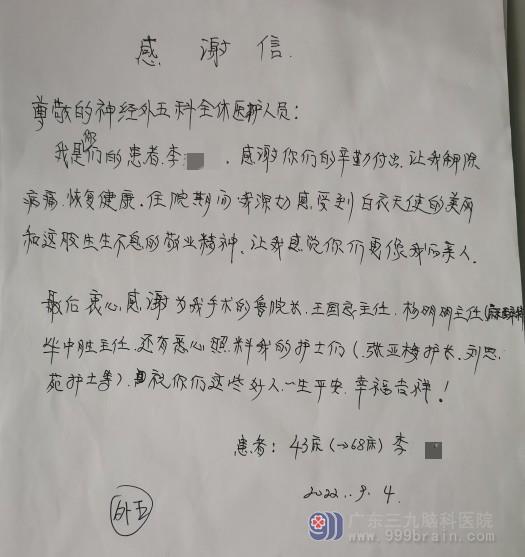 感谢信.
尊敬的神经外五科全体医护人员:
我是你们的患者.李 . 感谢你们的辛勤付出.让我解除
病痛.恢复健康.住院期间我深切感受到白衣天使的美丽
和这股生生不息的敬业精神.让我感觉你们更像我的亲人.
最后衷心感谢为我手术的鲁院长.王国良主任.杨明明主任
华中胜主任.还有悉心照料我的护士们(张亚梅护长.刘思.
苑护士等).祝你们这些好人一生平安.幸福吉祥!
患者: 43床(→68床) 李
2022..9.4.
外五
广东三九脑科医院
www.999brain.com